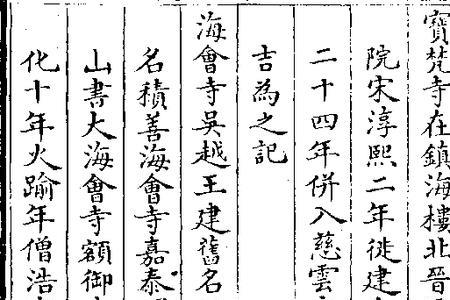 寳梵寺在鎮海樓北晉
院宋淳熙二年徙建
二十四年併入慈雲
吉為之記
海會寺吳越王建舊名
名積善海會寺嘉泰
山書大海會寺額御
化十年火踰年僧浩